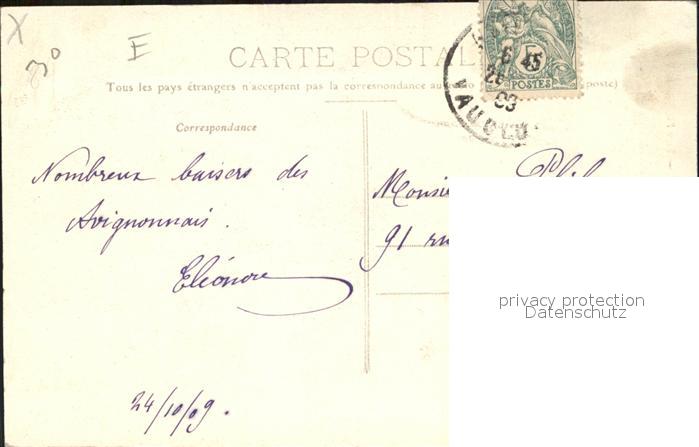 X
30
E
CARTE POSTAL
Tous les pays étrangers n'acceptent pas la correspondance au poste)
5
POSTES
6 45
VAUCLU
Correspondance
Nombreux baisers des
Avignonnais.
Eléonore
24/10/09.
Monsie
91 ru
privacy protection
Datenschutz